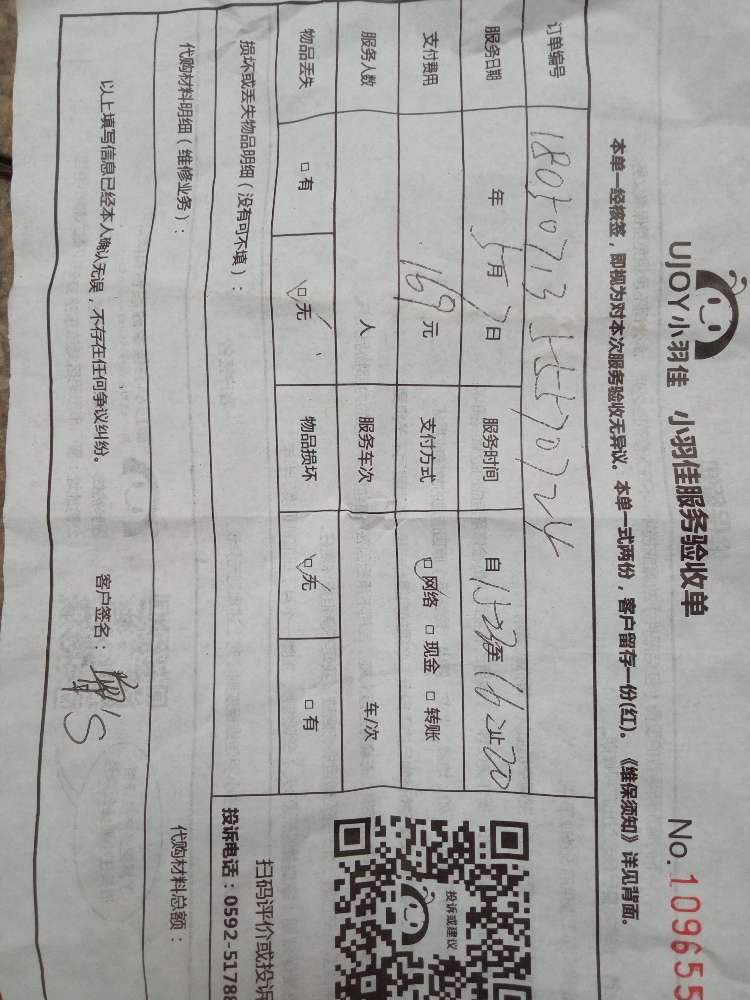 UJOY小羽佳 小羽佳服务验收单 No.109655
本单一经核签，即视为对本次服务验收无异议。本单一式两份，客户留存一份(红)。《维保须知》详见背面。
订单编号
服务日期 年 5月7日 服务时间 自
支付费用 169元 支付方式 ☑网络 □现金 □转账
服务人数 人 服务车次 车/次
物品丢失 □有 ☑无 物品损坏 ☑无 □有
损坏或丢失物品明细（没有可不填）：
代购材料明细（维修业务）： 代购材料总额：
以上填写信息已经本人确认无误，不存在任何争议纠纷。 客户签名：
投诉或建议
扫码评价或投诉
投诉电话：0592-5178